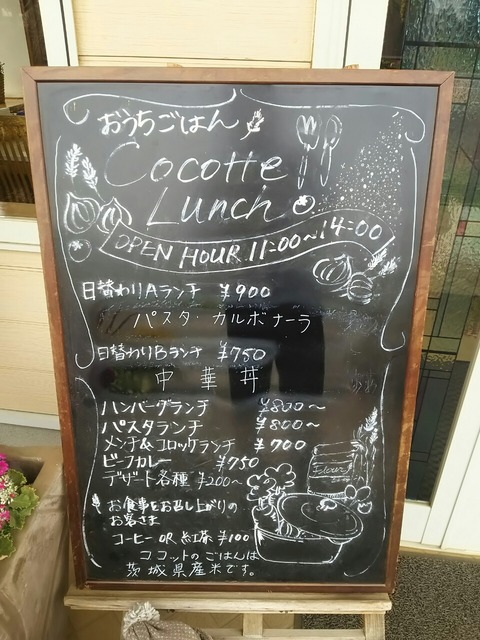 おうちごはん
Cocotte
Lunch
OPEN HOUR 11:00~14:00
日替わりAランチ ¥900
パスタ・カルボナーラ
日替わりBランチ ¥750
中華丼
ハンバーグランチ ¥800~
パスタランチ ¥800~
メンチ&コロッケランチ ¥700
ビーフカレー ¥750
デザート各種 ¥200~
Flour
お食事をお召し上がりの
お客さま
コーヒー OR 紅茶 ¥100
ココットのごはんは
茨城県産米です。